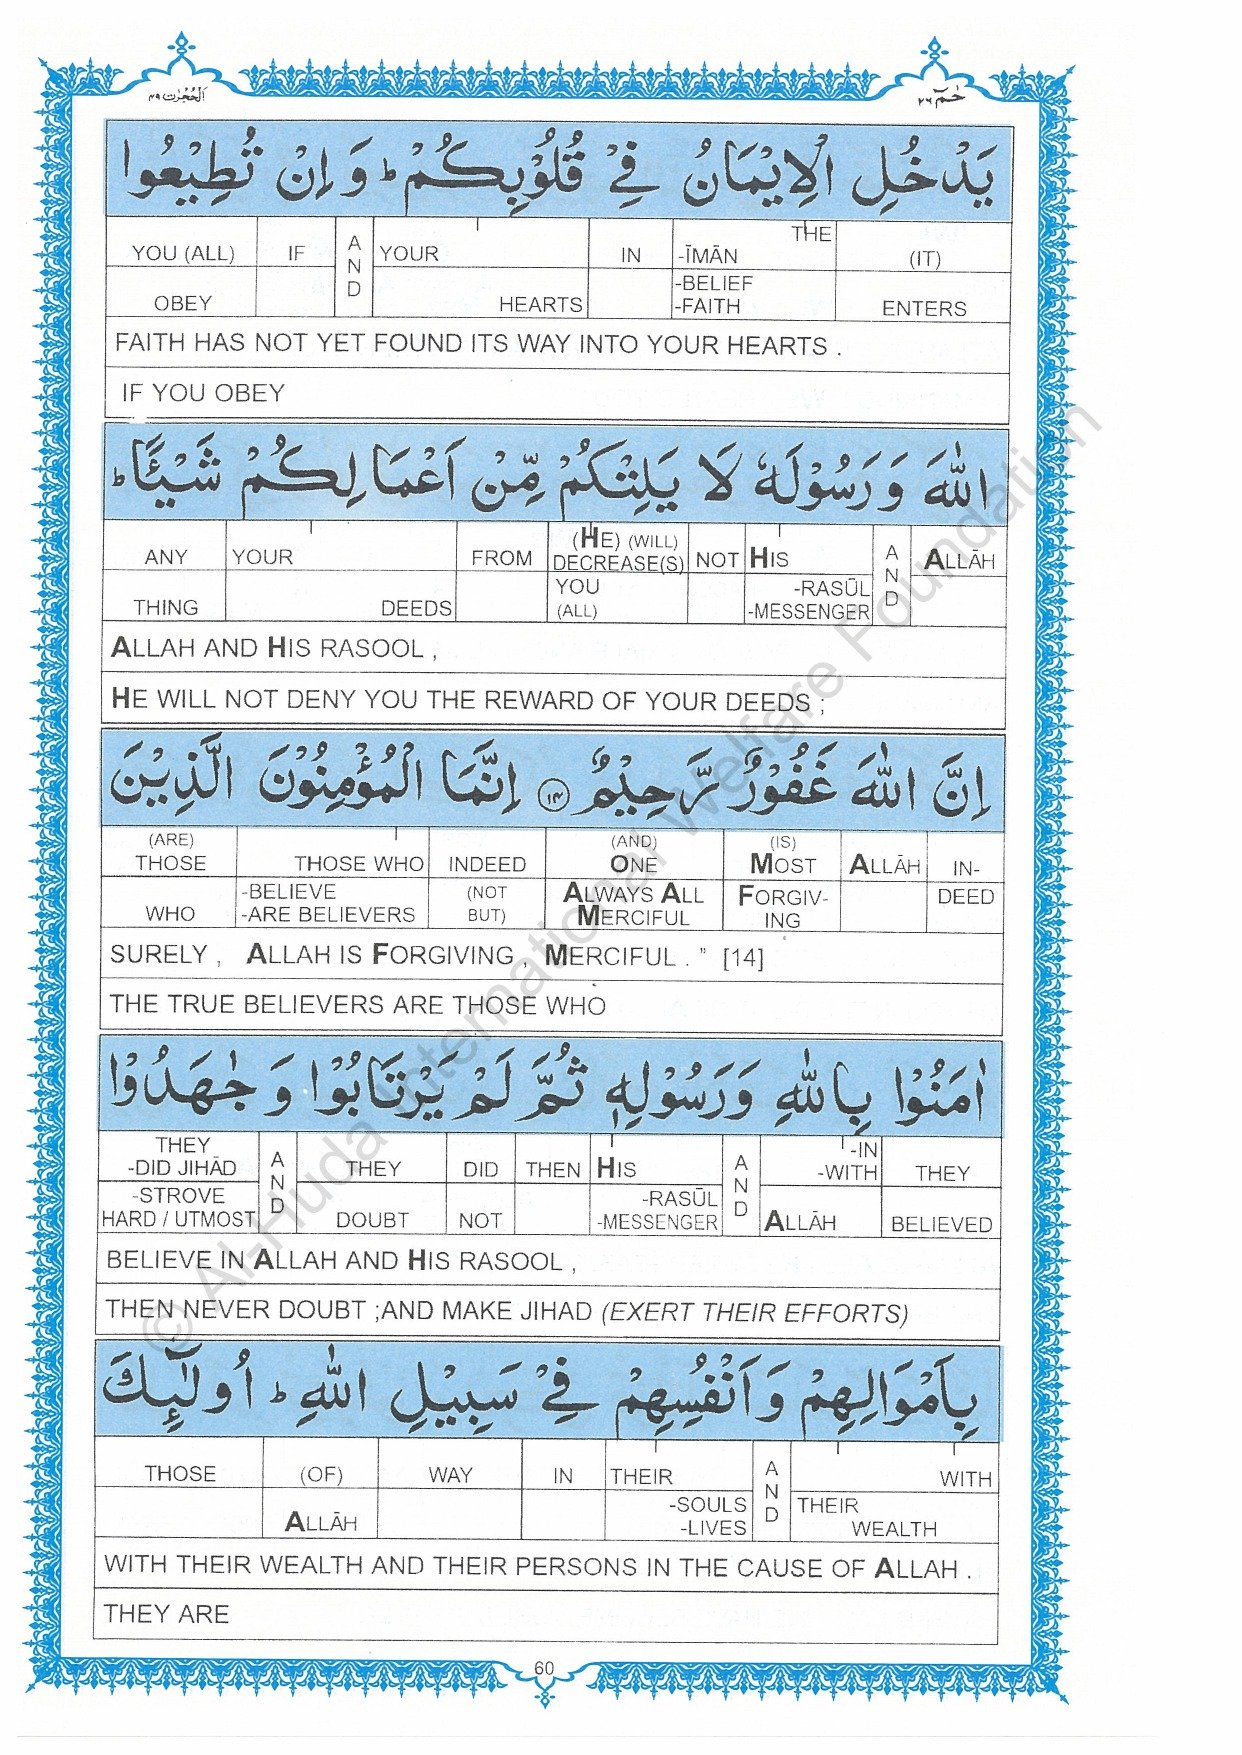 الحُجُرٰت ٤٩
حٰمٓ ٢٦
يَدْخُلِ الْاِيْمَانُ فِيْ قُلُوْبِكُمْ ؕ وَ اِنْ تُطِيْعُوا
YOU (ALL) OBEY | IF | AND | YOUR HEARTS | IN | THE -ĪMĀN -BELIEF -FAITH | (IT) ENTERS
FAITH HAS NOT YET FOUND ITS WAY INTO YOUR HEARTS .
IF YOU OBEY
اللّٰهَ وَ رَسُوْلَهٗ لَا يَلِتْكُمْ مِّنْ اَعْمَالِكُمْ شَيْـًٔا ؕ
ANY THING | YOUR DEEDS | FROM | (HE) (WILL) DECREASE(S) YOU (ALL) | NOT | HIS -RASŪL -MESSENGER | AND | ALLĀH
ALLAH AND HIS RASOOL ,
HE WILL NOT DENY YOU THE REWARD OF YOUR DEEDS ;
اِنَّ اللّٰهَ غَفُوْرٌ رَّحِيْمٌ ﴿١٤﴾ اِنَّمَا الْمُؤْمِنُوْنَ الَّذِيْنَ
(ARE) THOSE WHO | THOSE WHO -BELIEVE -ARE BELIEVERS | INDEED (NOT BUT) | (AND) ONE ALWAYS ALL MERCIFUL | (IS) MOST FORGIV-ING | ALLĀH | IN-DEED
SURELY , ALLAH IS FORGIVING , MERCIFUL . ” [14]
THE TRUE BELIEVERS ARE THOSE WHO
اٰمَنُوْا بِاللّٰهِ وَ رَسُوْلِهٖ ثُمَّ لَمْ يَرْتَابُوْا وَ جٰهَدُوْا
THEY -DID JIHĀD -STROVE HARD / UTMOST | AND | THEY DOUBT | DID NOT | THEN | HIS -RASŪL -MESSENGER | AND | -IN -WITH ALLĀH | THEY BELIEVED
BELIEVE IN ALLAH AND HIS RASOOL ,
THEN NEVER DOUBT ;AND MAKE JIHAD (EXERT THEIR EFFORTS)
بِاَمْوَالِهِمْ وَ اَنْفُسِهِمْ فِيْ سَبِيْلِ اللّٰهِ ؕ اُولٰٓئِكَ
THOSE | (OF) ALLĀH | WAY | IN | THEIR -SOULS -LIVES | AND | WITH THEIR WEALTH
WITH THEIR WEALTH AND THEIR PERSONS IN THE CAUSE OF ALLAH .
THEY ARE
60
© Al-Huda International Welfare Foundation